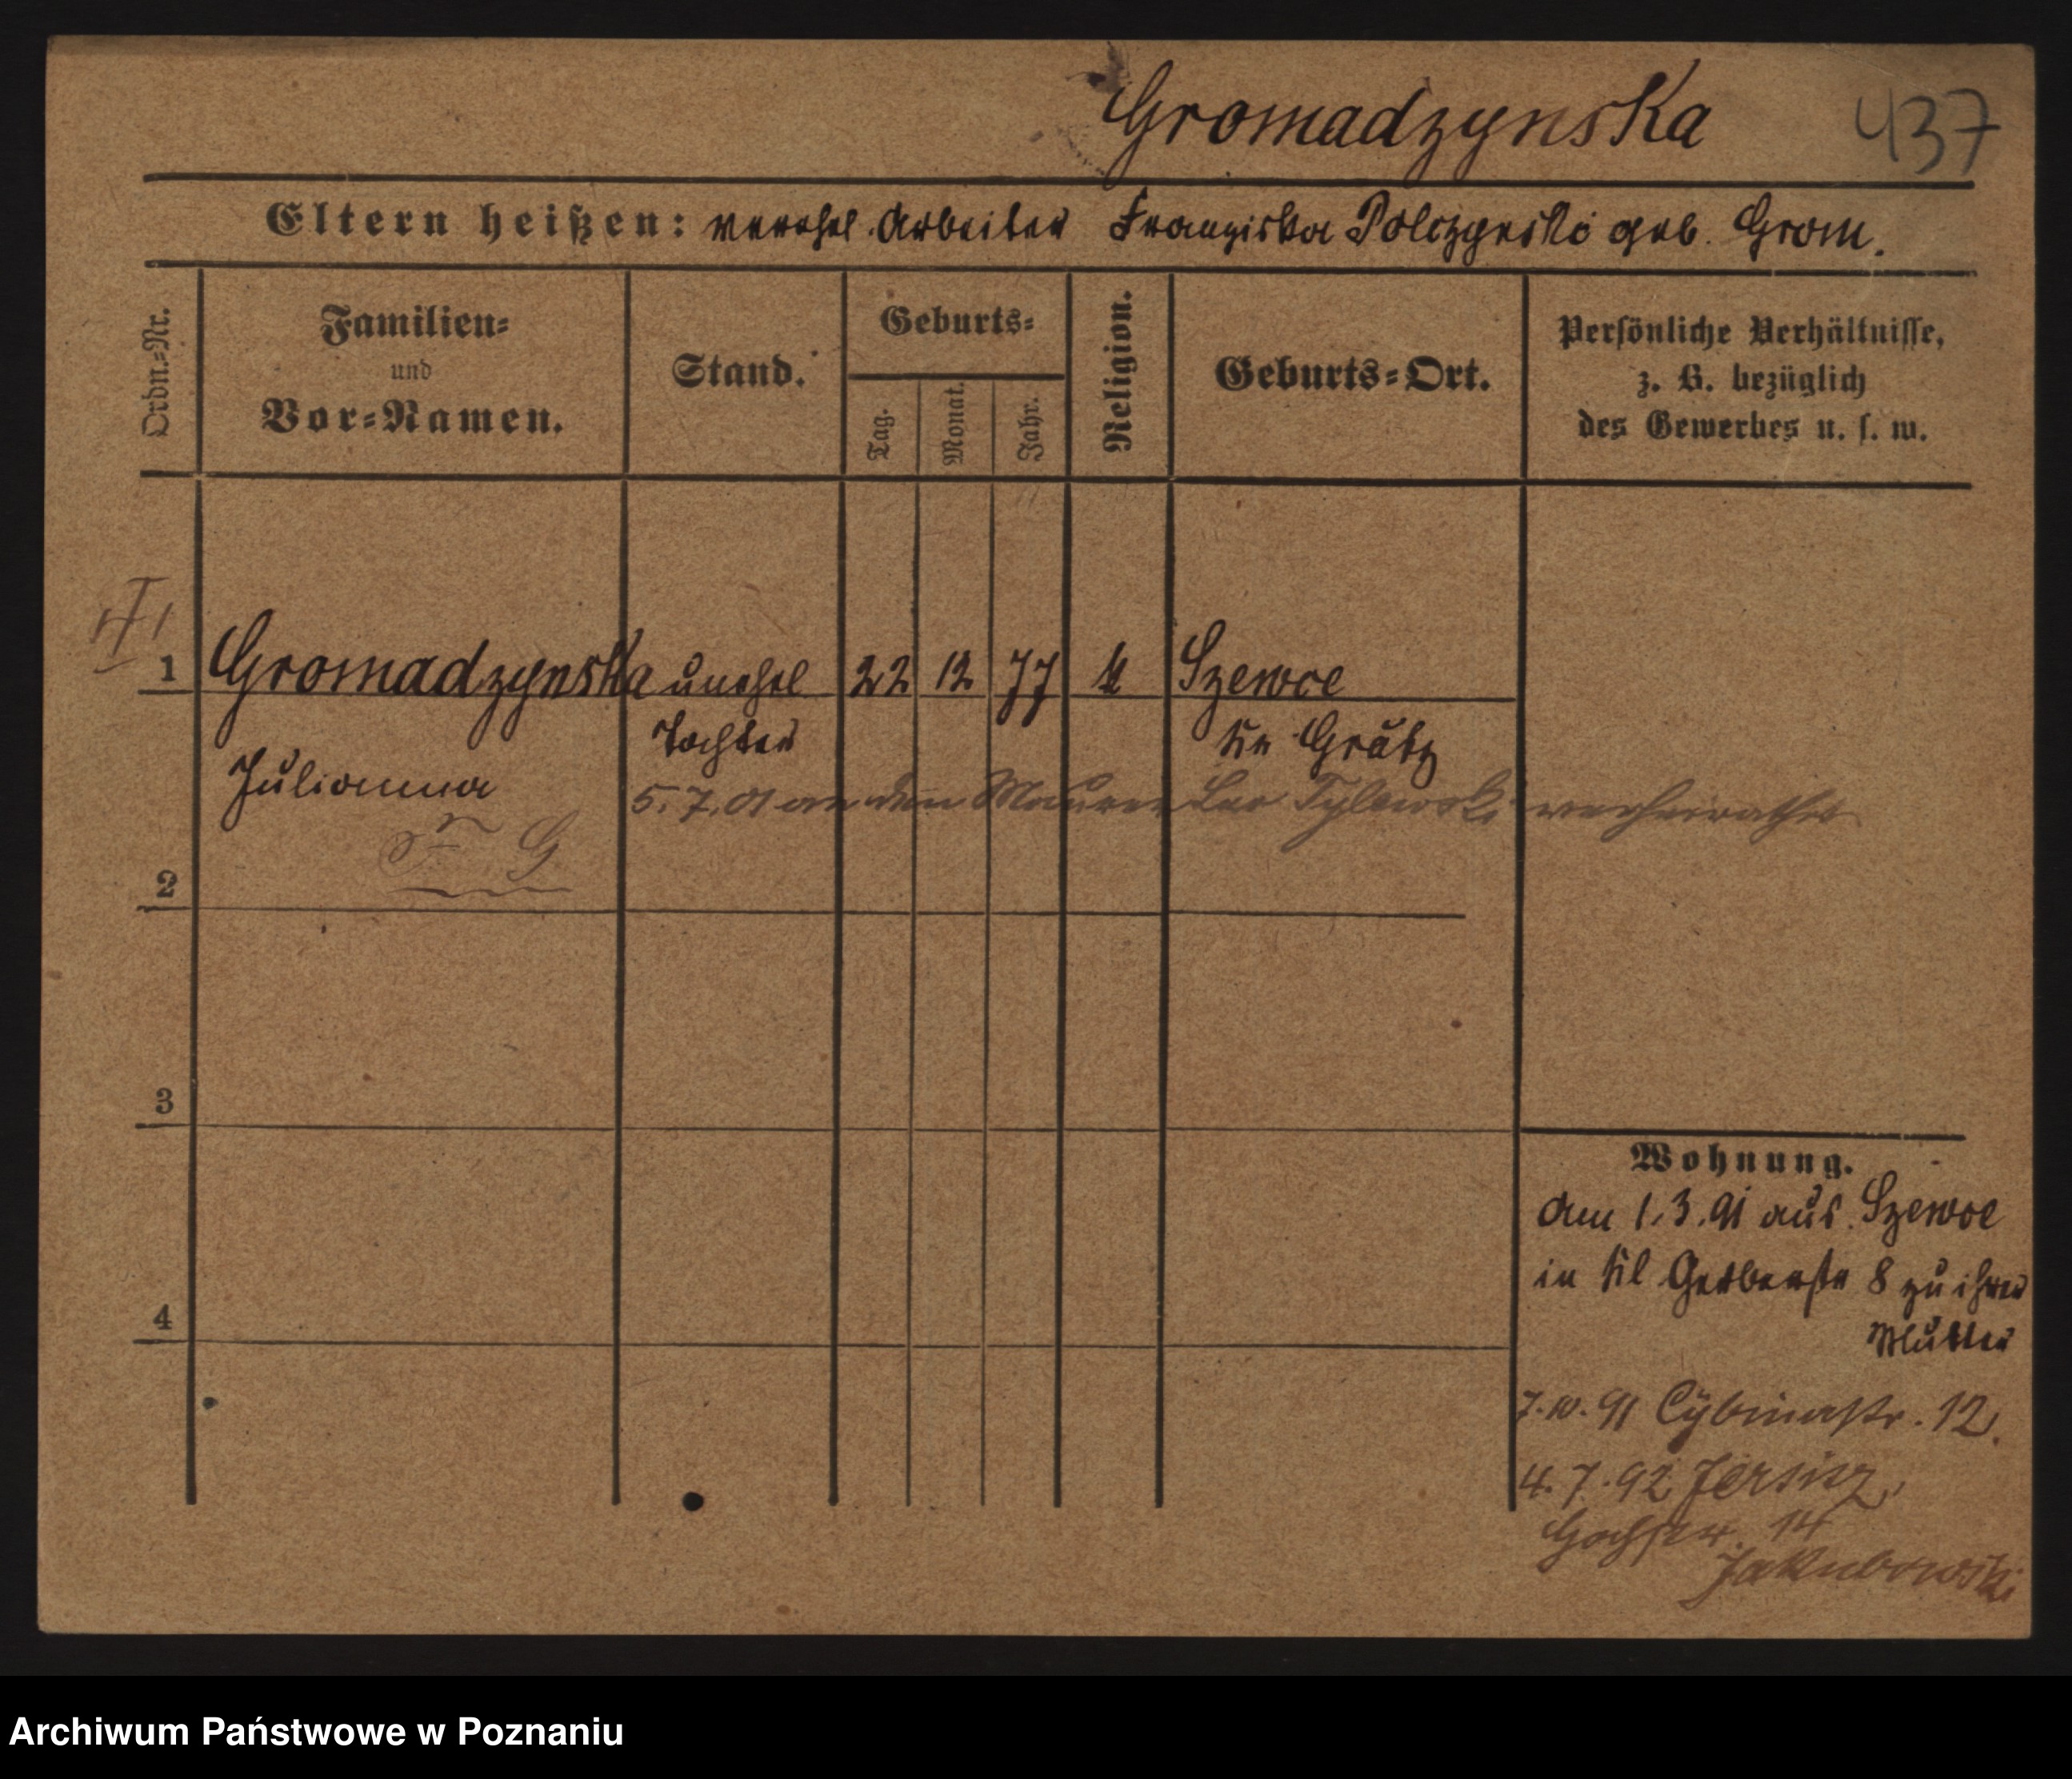 Gromadzynska 437
Eltern heißen: verehel. Arbeiter Franziska Polczynski geb. Grom.
Ordn.-Nr.
Familien-
und
Vor-Namen.
Stand.
Geburts-
Tag.
Monat.
Jahr.
Religion.
Geburts-Ort.
Persönliche Verhältnisse,
z. B. bezüglich
des Gewerbes u. s. w.
1 Gromadzynska unehel 22 12 77 k Szewce
Tochter Kr. Grätz
Julianna
5.7.01 an den Maurer Leo Tylewski verheirathet
G
2
3
4
Wohnung.
Am 1.3.91 aus Szewce
in Kl Gerberstr 8 zu ihrer
Mutter
7.10.91 Cybinastr. 12.
4.7.92 Jersitz,
Hochstr. 14
Jakubowski
Archiwum Państwowe w Poznaniu